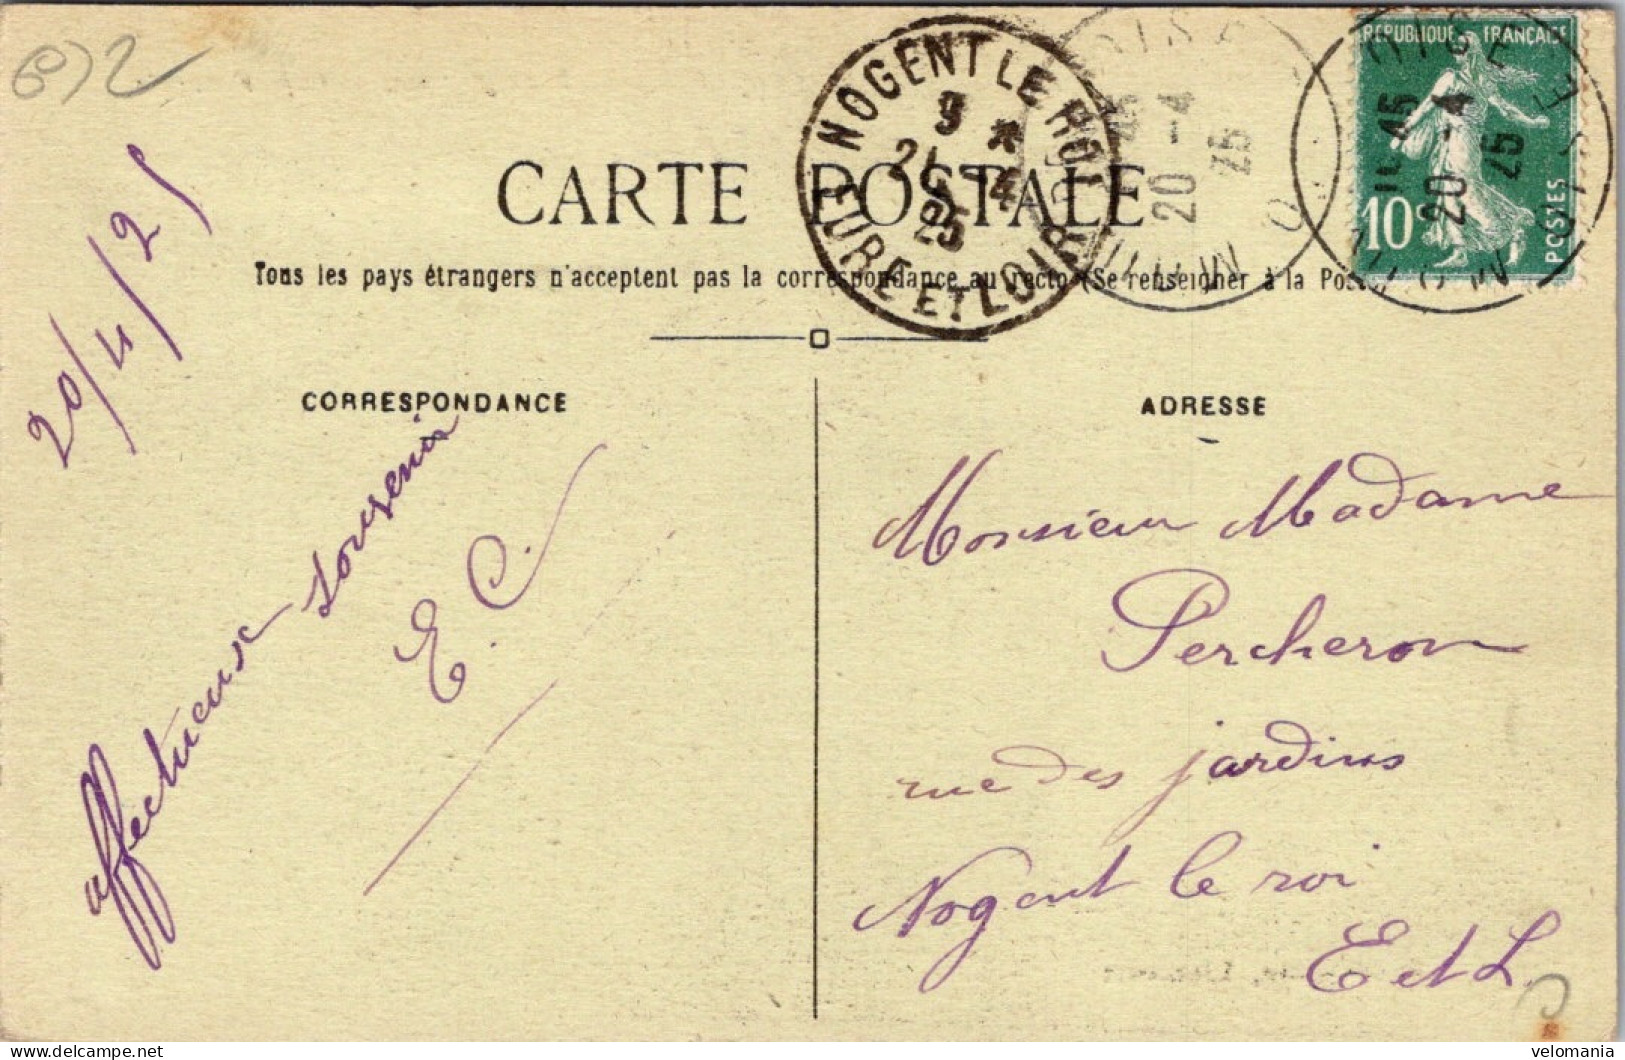 872
CARTE POSTALE
Tous les pays étrangers n'acceptent pas la correspondance au recto (Se renseigner à la Poste)
NOGENT LE ROI
5 *
21 - 4
25
EURE ET LOIR
OISE
45
20 - 4
25
OISE
11 45
20 - 4
25
REPUBLIQUE FRANÇAISE
10
POSTES
20/4/25
CORRESPONDANCE
affectueux souvenir
E. C.
ADRESSE
Monsieur Madame
Percheron
rue des jardins
Nogent le roi
E et L.
delcampe.net
velomania